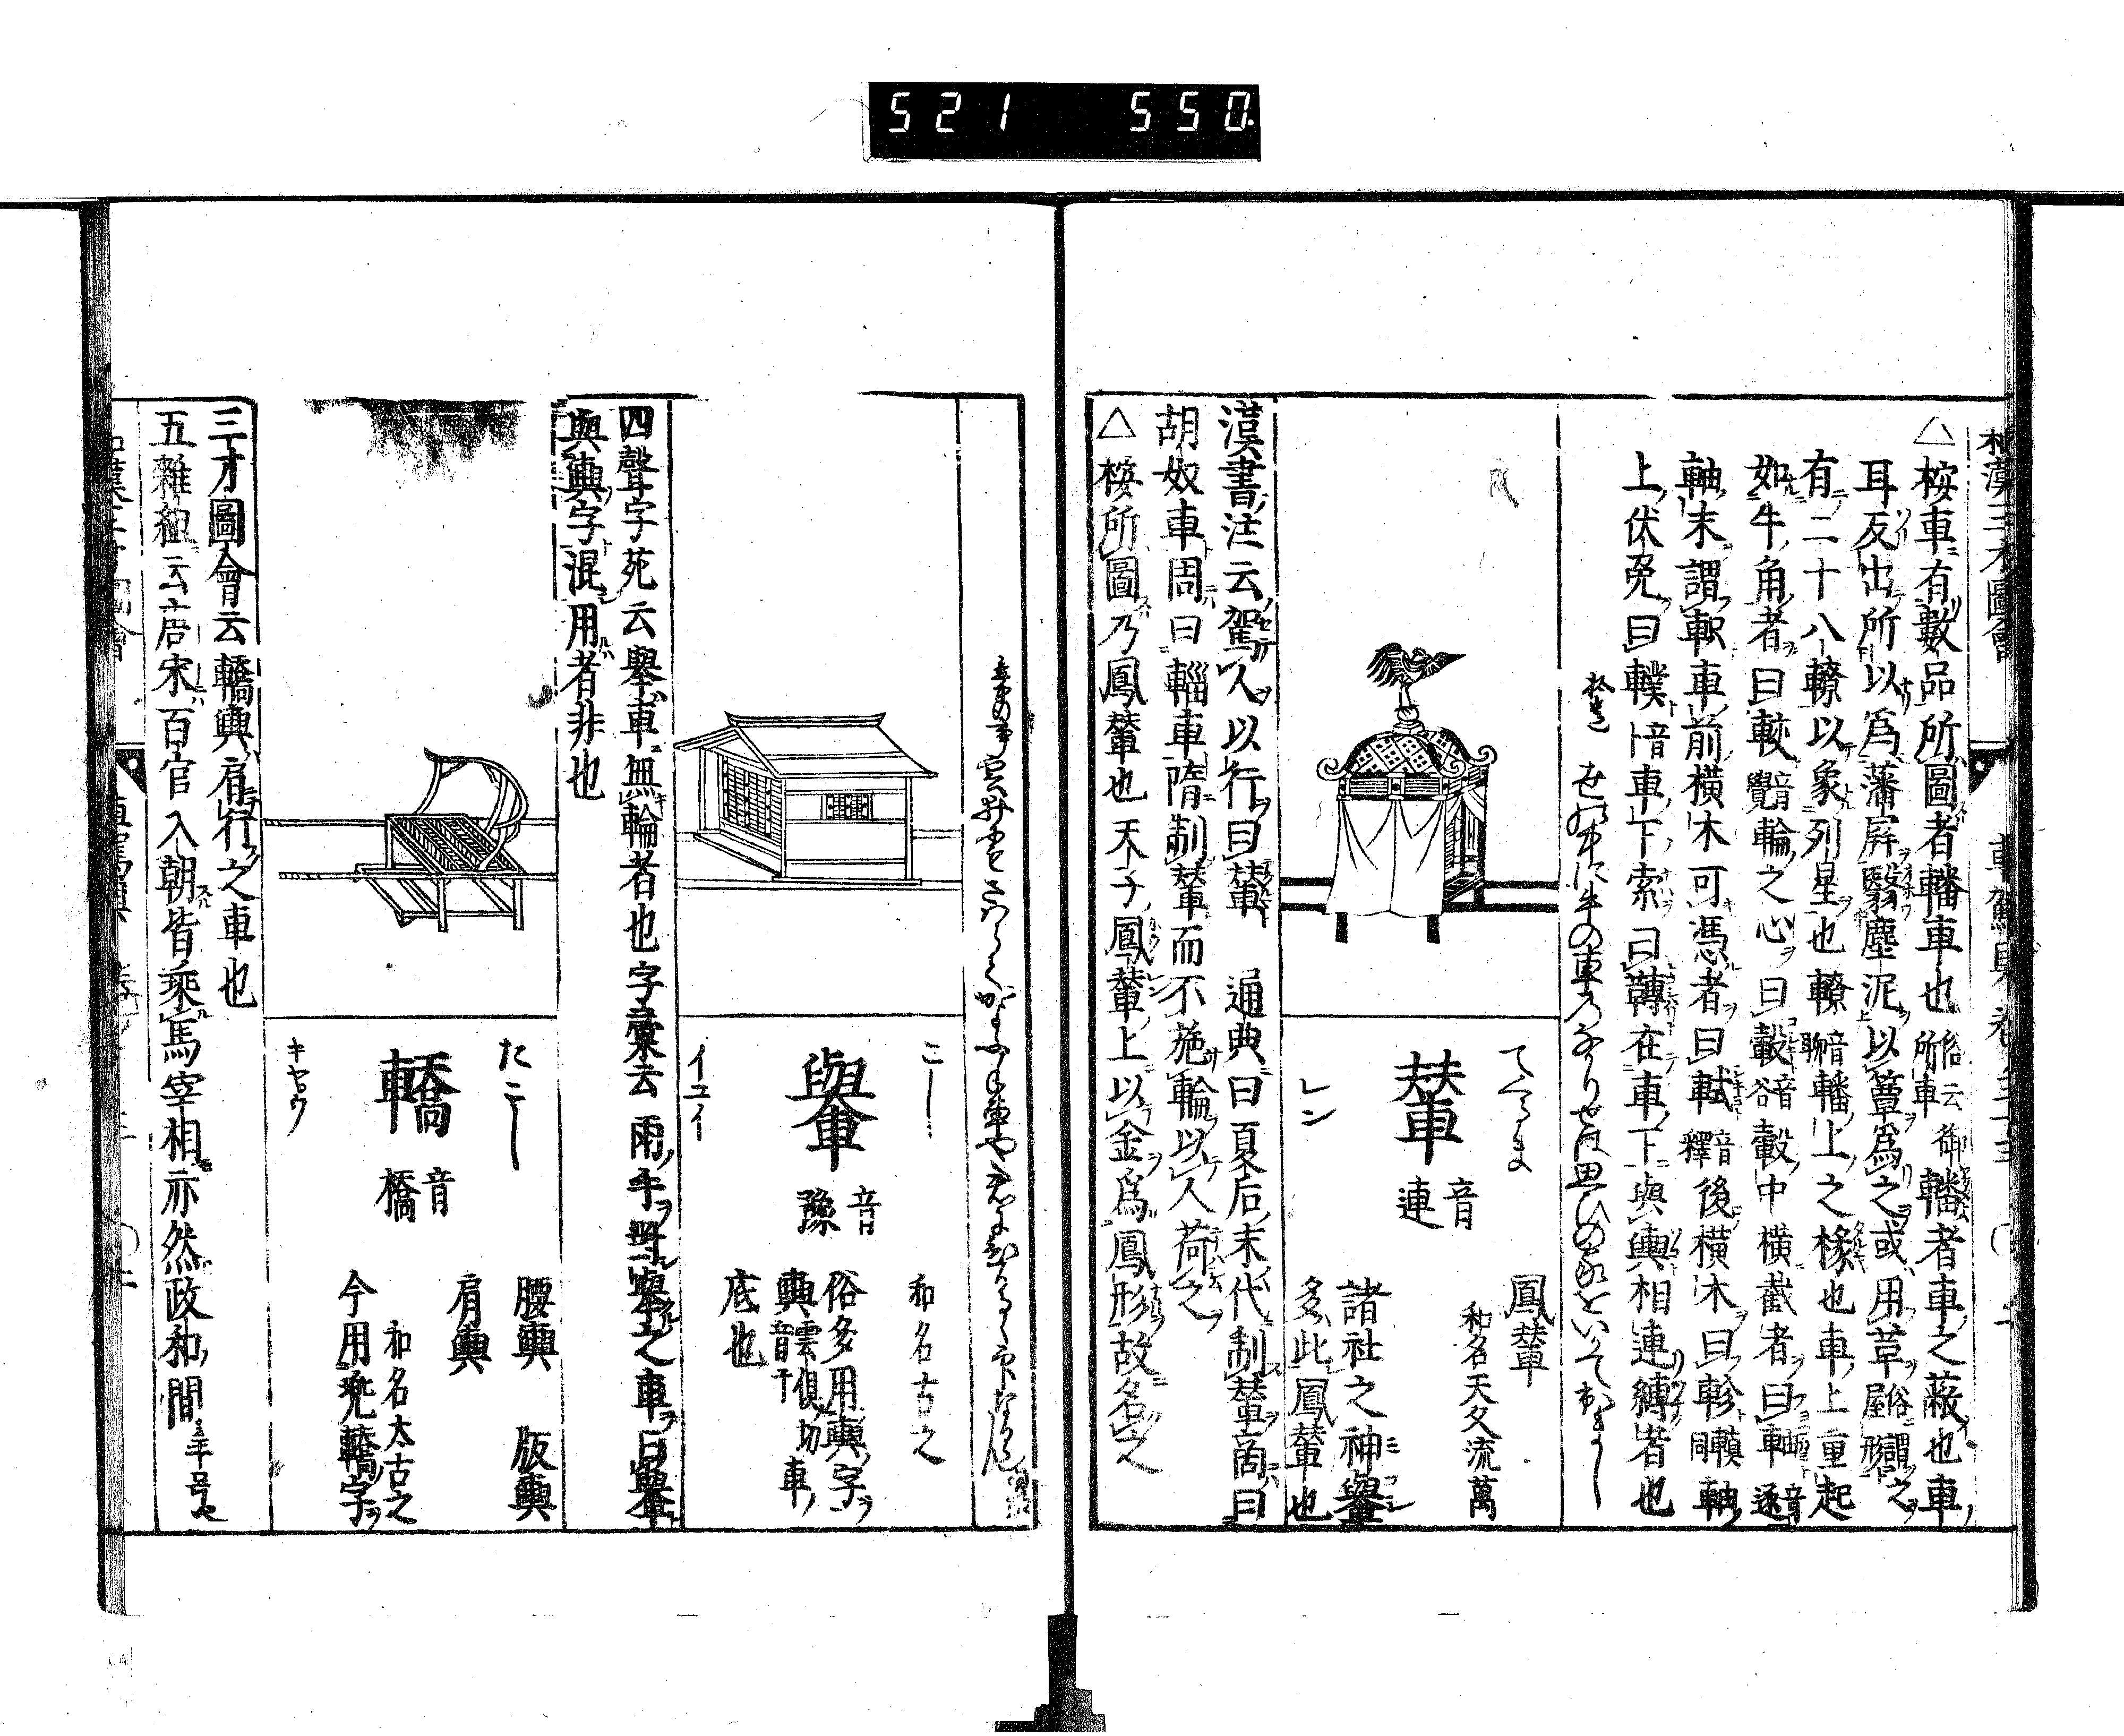 521 550
和漢三才圖會 車駕具 卷三十三 〇 二
△桉車有數品所圖者轓車也 俗云御所車 轓者車之蔽也車
耳反出所以爲藩屏翳塵泥以簟爲之或用革 俗謂之屋形
有二十八轑以象列星也轑 音聊 轓上之椽也車上重起
如牛角者曰較 音覺 輪之心曰轂 音谷 轂中橫截者曰
軸末謂軹車前橫木可憑者曰軾 音釋 後橫木曰軫 同 軸
上伏兔曰轐 音 車下索曰䡞在車下與輿相連縛者也
世の中に牛の車のなかりせば思ひの家をいかで出まし
てくるま
輦 音連
レン
鳳輦
和名天久流萬
諸社之神轝
多此鳳輦也
漢書注云駕人以行曰輦 通典曰夏后末代制輦商曰
胡奴車周曰輜車隋制輦而不施輪以人荷之
△桉所圖乃鳳輦也天子鳳輦上以金爲鳳形故名之
こし
轝 音豫
イユイ
和名古之
俗多用輿字
輿 雲俱切 音于 車
底也
四聲字苑云轝車無輪者也字彙云兩手對擧之車曰轝
與輿字混用者非也
たこし
轎 音橋
キヤウ
腰輿 版輿
肩輿
和名太古之
今用兜轎字
三才圖會云轎輿肩行之車也
五雜組云唐宋百官入朝皆乘馬宰相亦然政和間 年号也